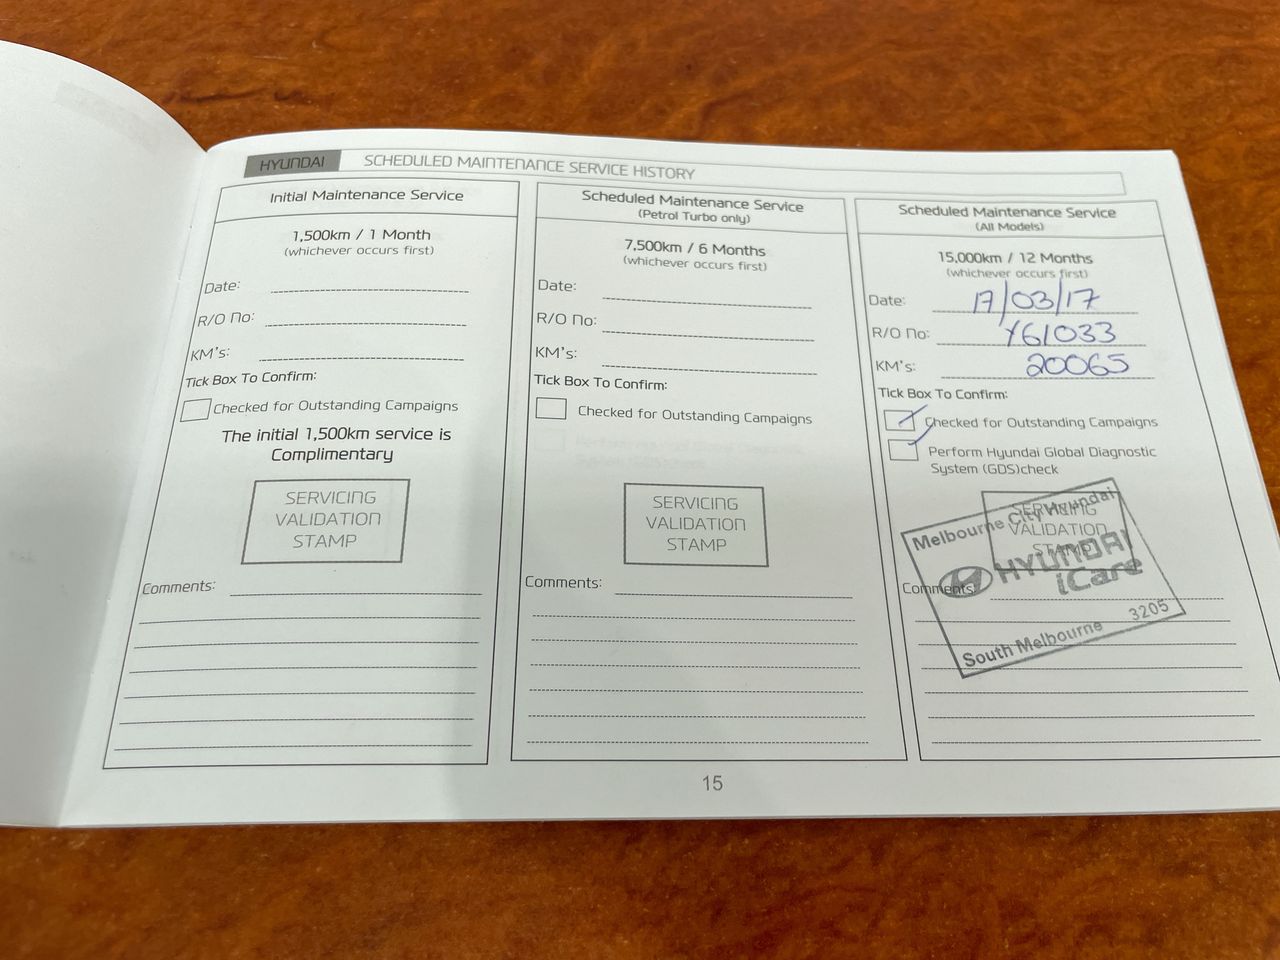 HYUNDAI SCHEDULED MAINTENANCE SERVICE HISTORY
Initial Maintenance Service
1,500km / 1 Month
(whichever occurs first)
Date:
R/O No:
KM's:
Tick Box To Confirm:
Checked for Outstanding Campaigns
The initial 1,500km service is
Complimentary
SERVICING
VALIDATION
STAMP
Comments:
Scheduled Maintenance Service
(Petrol Turbo only)
7,500km / 6 Months
(whichever occurs first)
Date:
R/O No:
KM's:
Tick Box To Confirm:
Checked for Outstanding Campaigns
SERVICING
VALIDATION
STAMP
Comments:
Scheduled Maintenance Service
(All Models)
15,000km / 12 Months
(whichever occurs first)
Date: 17/03/17
R/O No: Y61033
KM's: 20065
Tick Box To Confirm:
Checked for Outstanding Campaigns
Perform Hyundai Global Diagnostic
System (GDS)check
SERVICING
VALIDATION
STAMP
Comments:
Melbourne City Hyundai
HYUNDAI
iCare
South Melbourne 3205
15